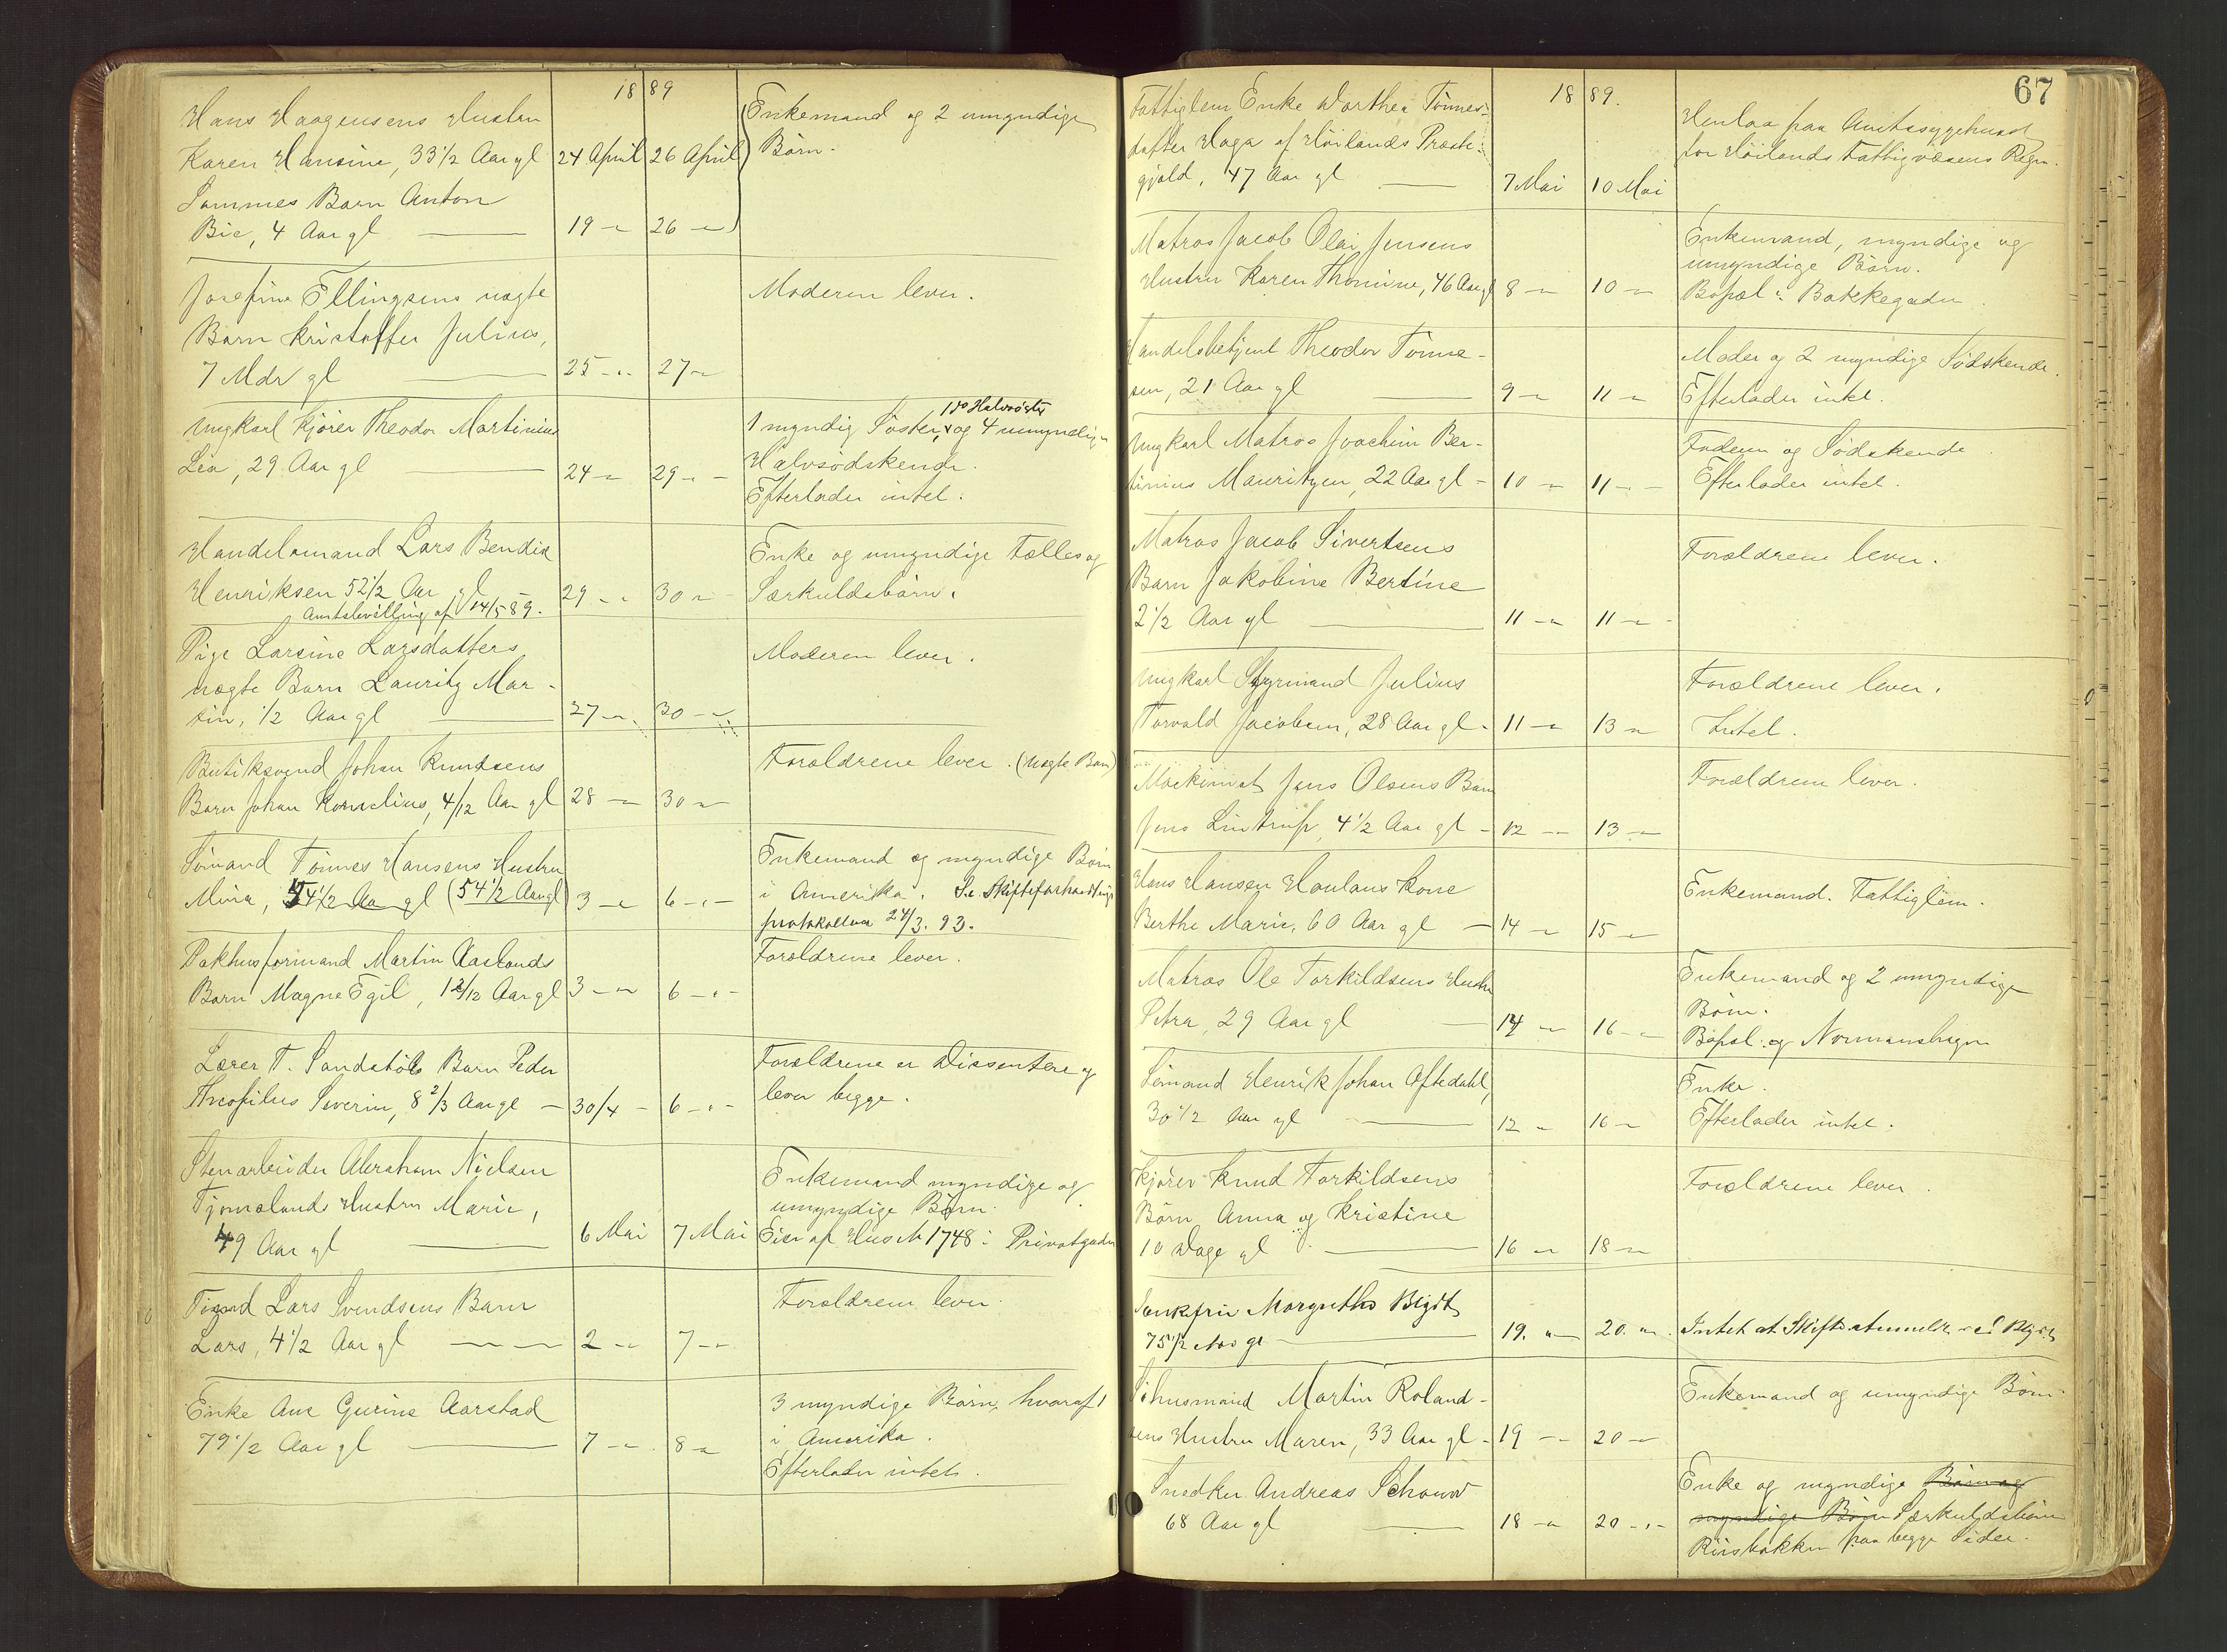 18 89
Hans Haagensens Hustru
Karen Hansine, 33 1/2 Aar gl 24 April 26 April
Enkemand og 2 umyndige
Børn.
Sammes Barn Anton
Bie, 4 Aar gl — 19 — 26 —
Josefine Ellingsens uægte
Barn Kristoffer Julius,
7 Mdr gl — 25 — 27 —
Moderen lever.
Ungkarl Kjører Theodor Martinius
Lea, 29 Aar gl — 24 — 29 —
1 do Halvsøster
1 myndig Søster, og 4 umyndige
Halvsødskende.
Efterlader intet.
Handelsmand Lars Bendix
Henriksen 52 1/2 Aar gl 29 — 30 —
Amtsbevilling af 14/5 89.
Enke og umyndige Fælles og
Særkuldsbørn.
Pige Larsine Larsdatters
uægte Barn Lauritz Mar-
tin, 1/2 Aar gl — 27 — 30 —
Moderen lever.
Butiksvend Johan Knudsens
Barn Johan Kornelius, 4/12 Aar gl 28 — 30 —
Forældrene lever. (uægte Barn)
Sømand Tønnes Hansens Hustru
Mina, 54 1/2 Aar gl (54 1/2 Aar gl) 3 — 6 —
Enkemand og myndige Børn
i Amerika. Se Skifteforhandlings
protokollen 24/3. 93.
Pakhusformand Martin Aaslands
Barn Magne Egil, 1 2/12 Aar gl 3 — 6 —
Forældrene lever.
Lærer T. Sandstøls Barn Peder
Theofilus Severin, 8 2/3 Aar gl — 30/4 — 6 —
Forældrene er Dissentere og
lever begge.
Stenarbeider Abraham Nielsen
Tjomslands Hustru Marie,
49 Aar gl — 6 Mai 7 Mai
Enkemand myndige og
umyndige Børn.
Eier af Hus № 1748 i Privatgaden
Lars Svendsens Barn
Lars, 4 1/2 Aar gl — 2 — 7 —
Forældrene lever.
Enke Ane Gurine Aarstad
79 1/2 Aar gl — 7 — 8 —
3 myndige Børn, hvoraf 1
i Amerika.
Efterlader intet.
67
18 89.
Fattiglem Enke Dorthea Tønnes-
datter Haga af Høilands Præste-
gjæld, 47 Aar gl — 7 Mai 10 Mai
Henlaa paa Amtssygehuset
for Høilands Fattigvæsens Regn.
Matros Jacob Olai Jensens
Hustru Karen Thomine, 46 Aar gl 8 — 10 —
Enkemand, myndige og
umyndige Børn.
Bopæl i Bakkegaden.
Handelsbetjent Theodor Tønne-
sen, 21 Aar gl — 9 — 11 —
Moder og 2 myndige Sødskende.
Efterlader intet.
Ungkarl Matros Joachim Ber-
tinius Mauritzen, 22 Aar gl — 10 — 11 —
Faderen og Sødskende
Efterlader intet.
Matros Jacob Sivertsens
Barn Jakobine Bertine
2 1/2 Aar gl — 11 — 11 —
Forældrene lever.
Ungkarl Styrmand Julius
Torvald Jacobsen, 28 Aar gl — 11 — 13 —
Forældrene lever.
Intet.
Maskinist Jens Olsens Barn
Jens Lintrup, 4 1/2 Aar gl — 12 — 13 —
Forældrene lever.
Hans Hansen Haulans Kone
Berthe Marie, 60 Aar gl — 14 — 15 —
Enkemand. Fattiglem.
Matros Ole Torkildsens Hustru
Petra, 29 Aar gl — 14 — 16 —
Enkemand og 2 umyndige
Børn.
Bopæl Normanshagen
Sømand Henrik Johan Aftedahl,
30 1/2 Aar gl — 12 — 16 —
Enke.
Efterlader intet.
Kjører Knud Torkildsens
Børn Anna og Kristine
10 Dage gl — 16 — 18 —
Forældrene lever.
Margrethe Blydt
75 1/2 Aar gl — 19. — 20. —
Intet at Skifte
Søhusmand Martin Roland-
sens Hustru Maren, 33 Aar gl — 19 — 20 —
Enkemand og umyndige Børn.
Snedker Andreas Schouw
68 Aar gl — 18 — 20 —
Enke og myndige Børn og
myndige Børn Særkuldsbørn
Riisbakken paa begge Sider.